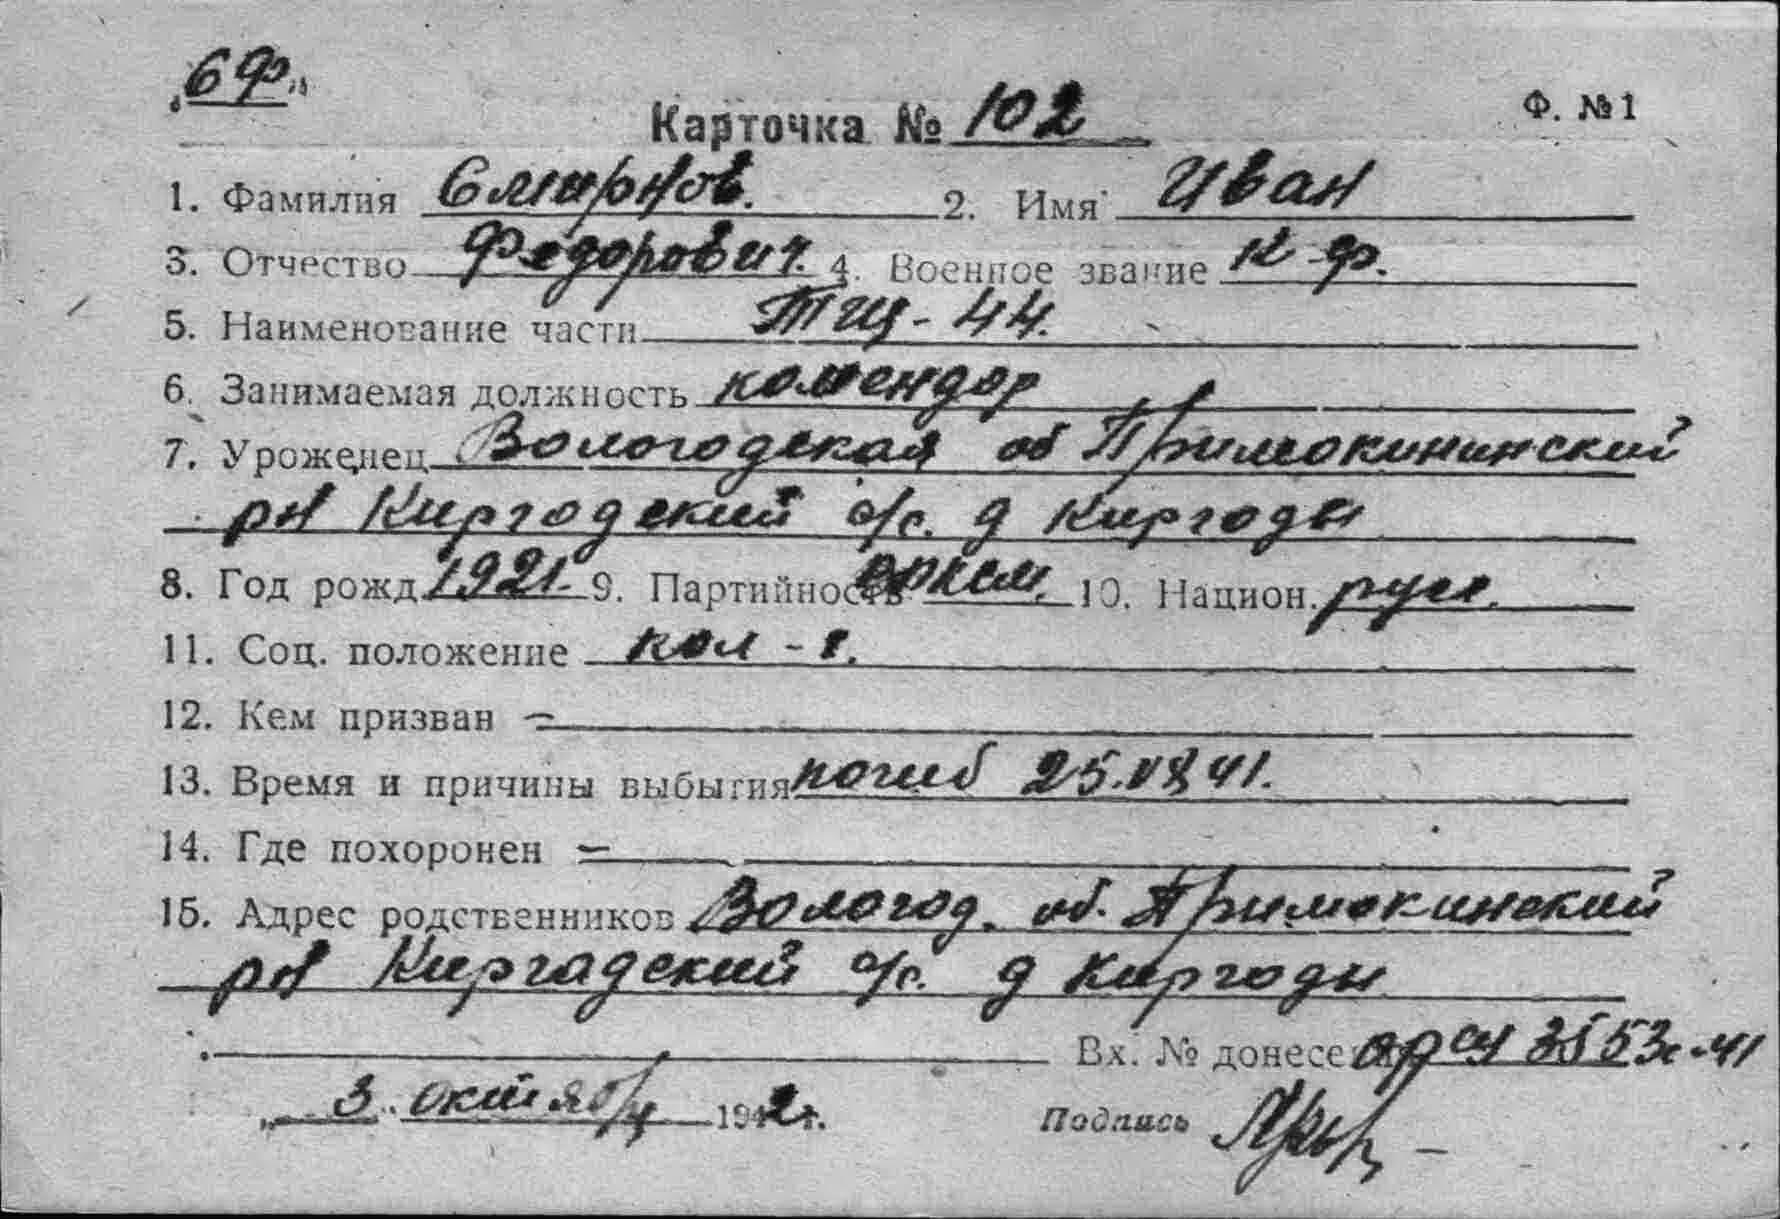 „6Ф"
Карточка № 102
Ф. №1
1. Фамилия Смирнов. 2. Имя Иван
3. Отчество Федорович. 4. Военное звание к-ф.
5. Наименование части ТЩ-44.
6. Занимаемая должность комендор
7. Уроженец Вологодская об Примокининский
рн Киргодский с/с. д Киргоды
8. Год рожд. 1921. 9. Партийность 10. Национ. русс.
11. Соц. положение кол-к.
12. Кем призван —
13. Время и причины выбытия погиб 25.08.41.
14. Где похоронен —
15. Адрес родственников Вологод. об. Примокинский
рн Киргадский с/с. д Киргоды
Вх. № донесения 3553с-41
„3" октября 1942 г. Подпись